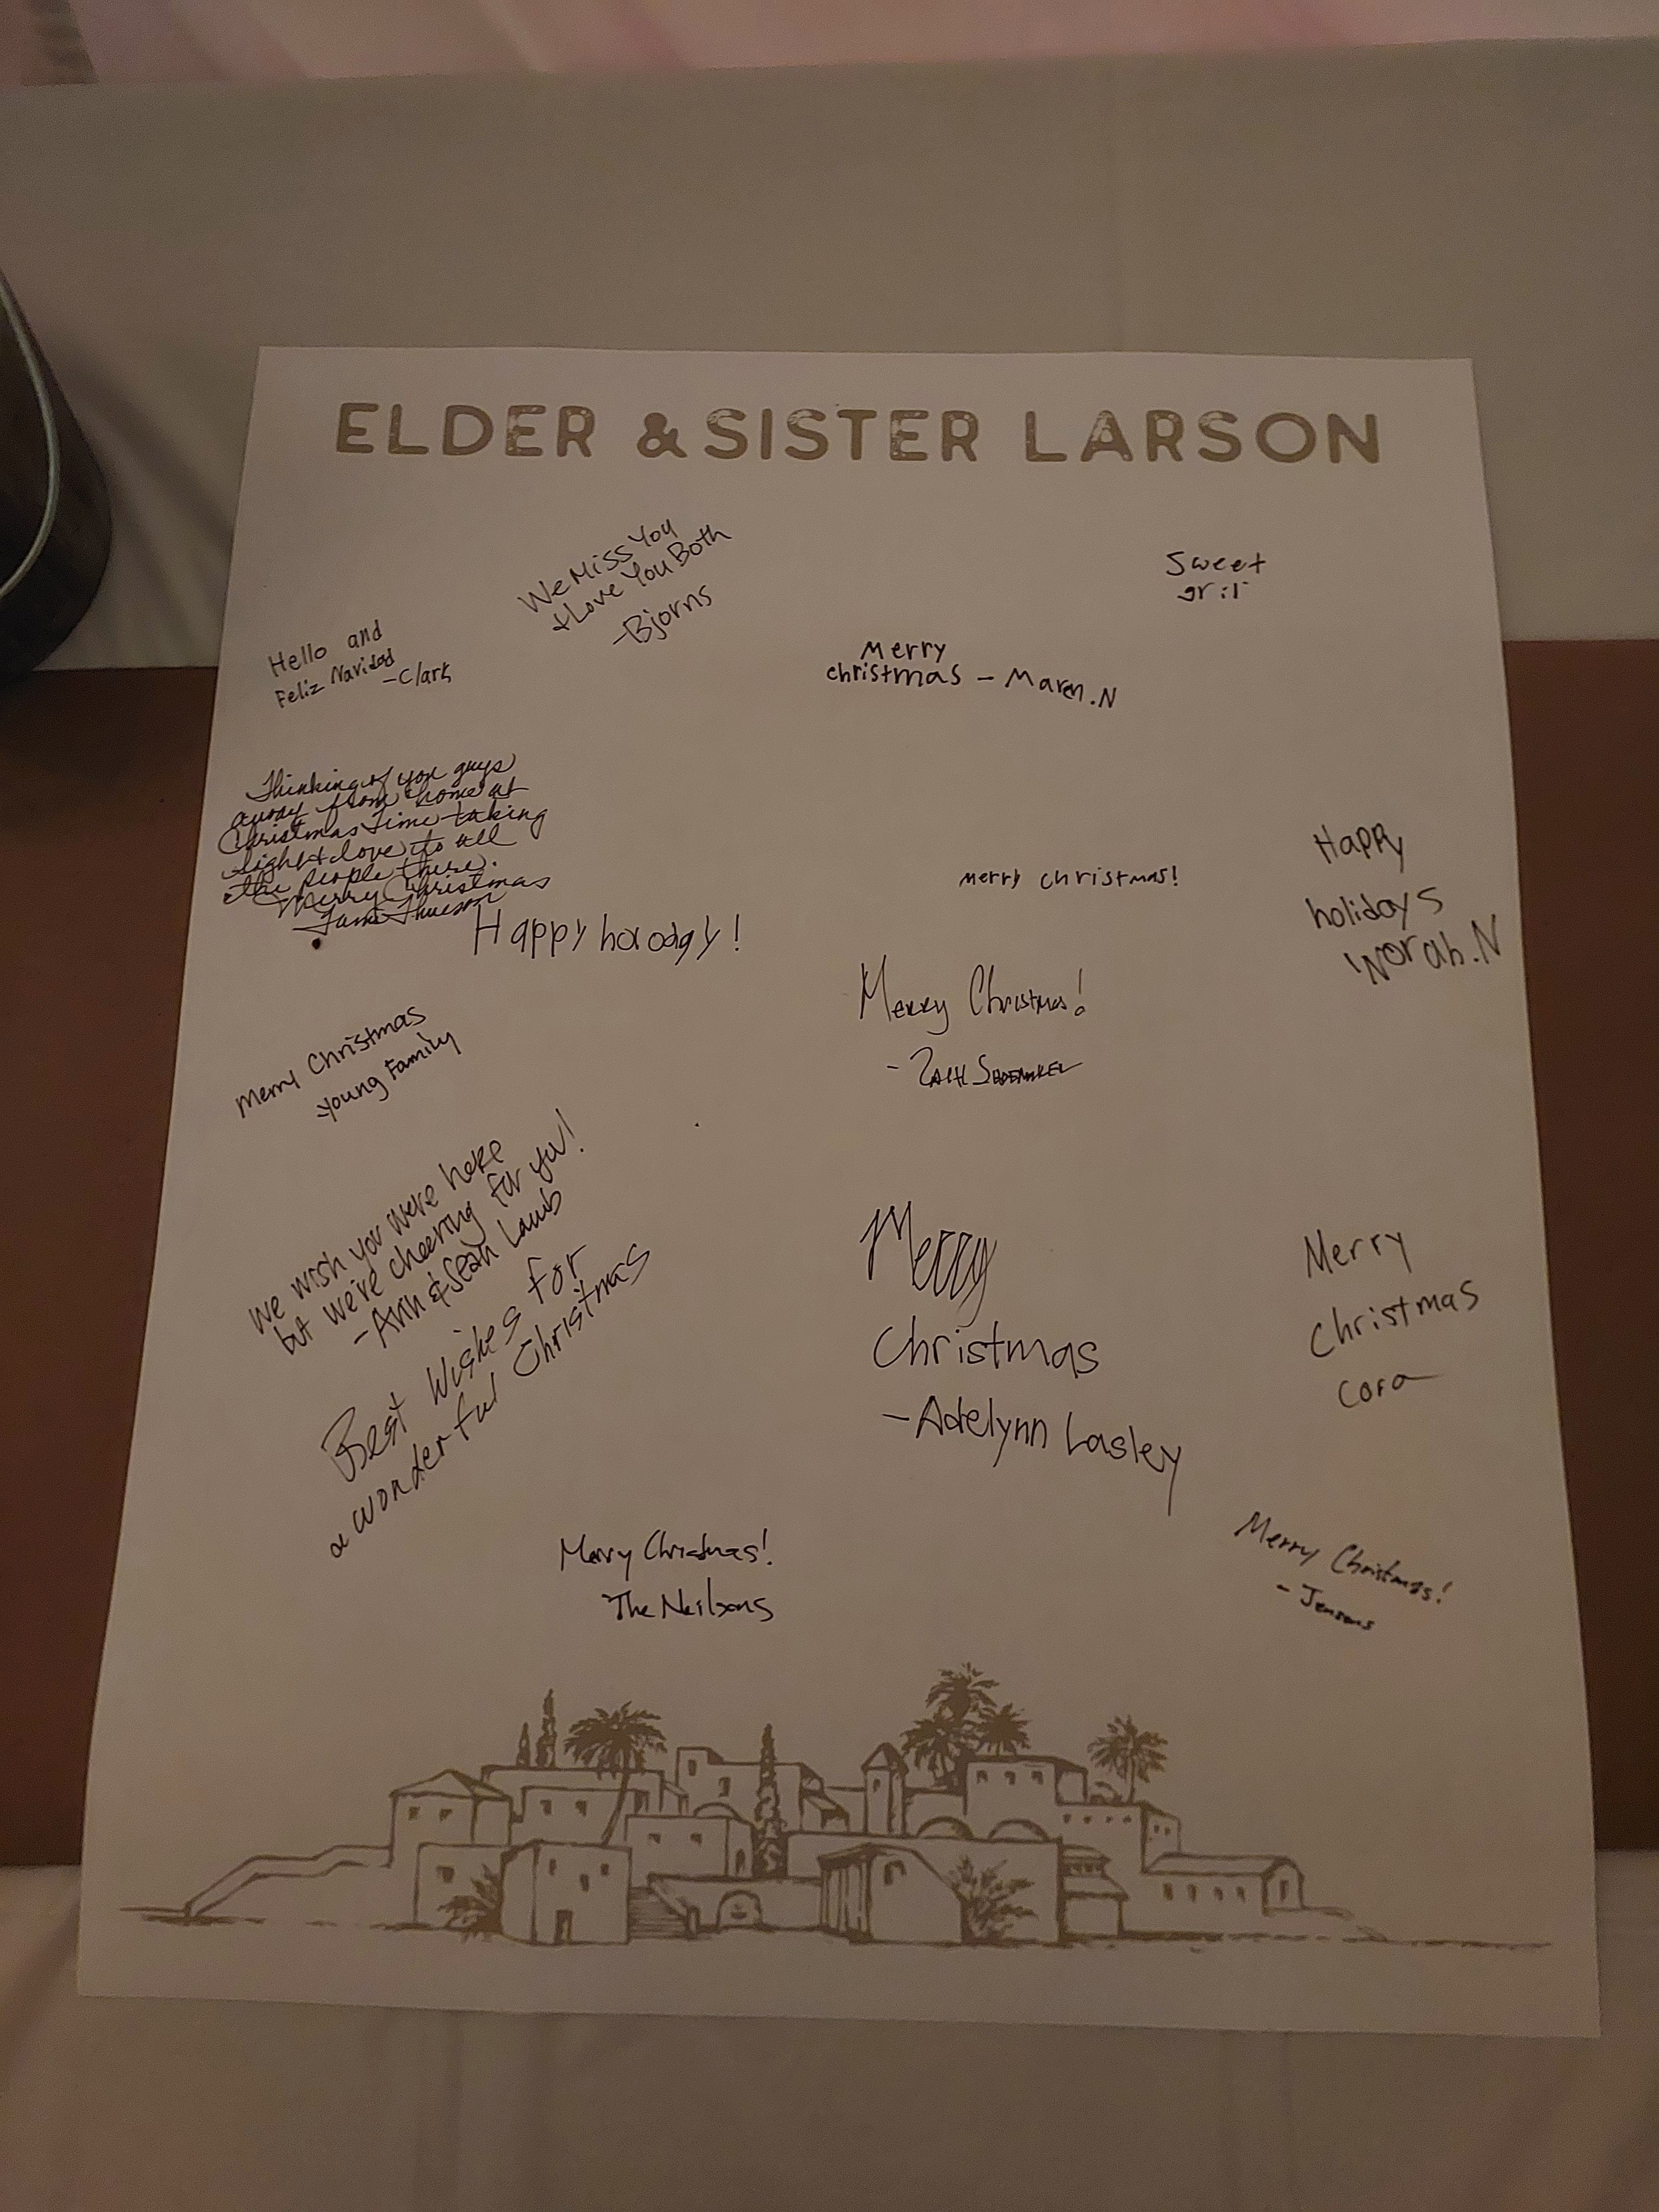 ELDER & SISTER LARSON
We Miss You
& Love You Both
-Bjorns
Sweet
Hello and
Feliz Navidad
-Clark
Merry
christmas - Maren.N
Thinking of you guys
away from home at
Christmas Time taking
light & love to all
the people there.
Merry Christmas
Happy horodgy!
merry christmas!
Happy
holidays
Norah.N
Merry Christmas!
- Zach Shoemaker
Merry Christmas
-Young Family
We wish you were here
but we're cheering for you!
-Ann & Sean Lamb
Best Wishes for
a wonderful Christmas
Merry
Christmas
-Adelynn Lasley
Merry
Christmas
Cora
Merry Christmas!
The Neilsons
Merry Christmas!
- Jensens